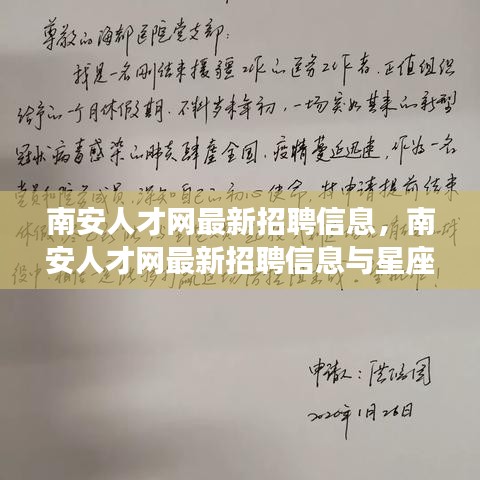 尊敬的海都医院党支部:
我是一名刚结束援疆工作的医务工作者,正值组织
给予的一个月休假期.不料岁末年初,一场突如其来的新型
冠状病毒感染的肺炎肆虐全国,疫情蔓延迅速,作为一名
党员和院党成员,深知自己的初心使命,我申请提前结束
南安人才网最新招聘信息，南
安人才网最新招聘信息与星座
申请人:洪
2020年1月26日